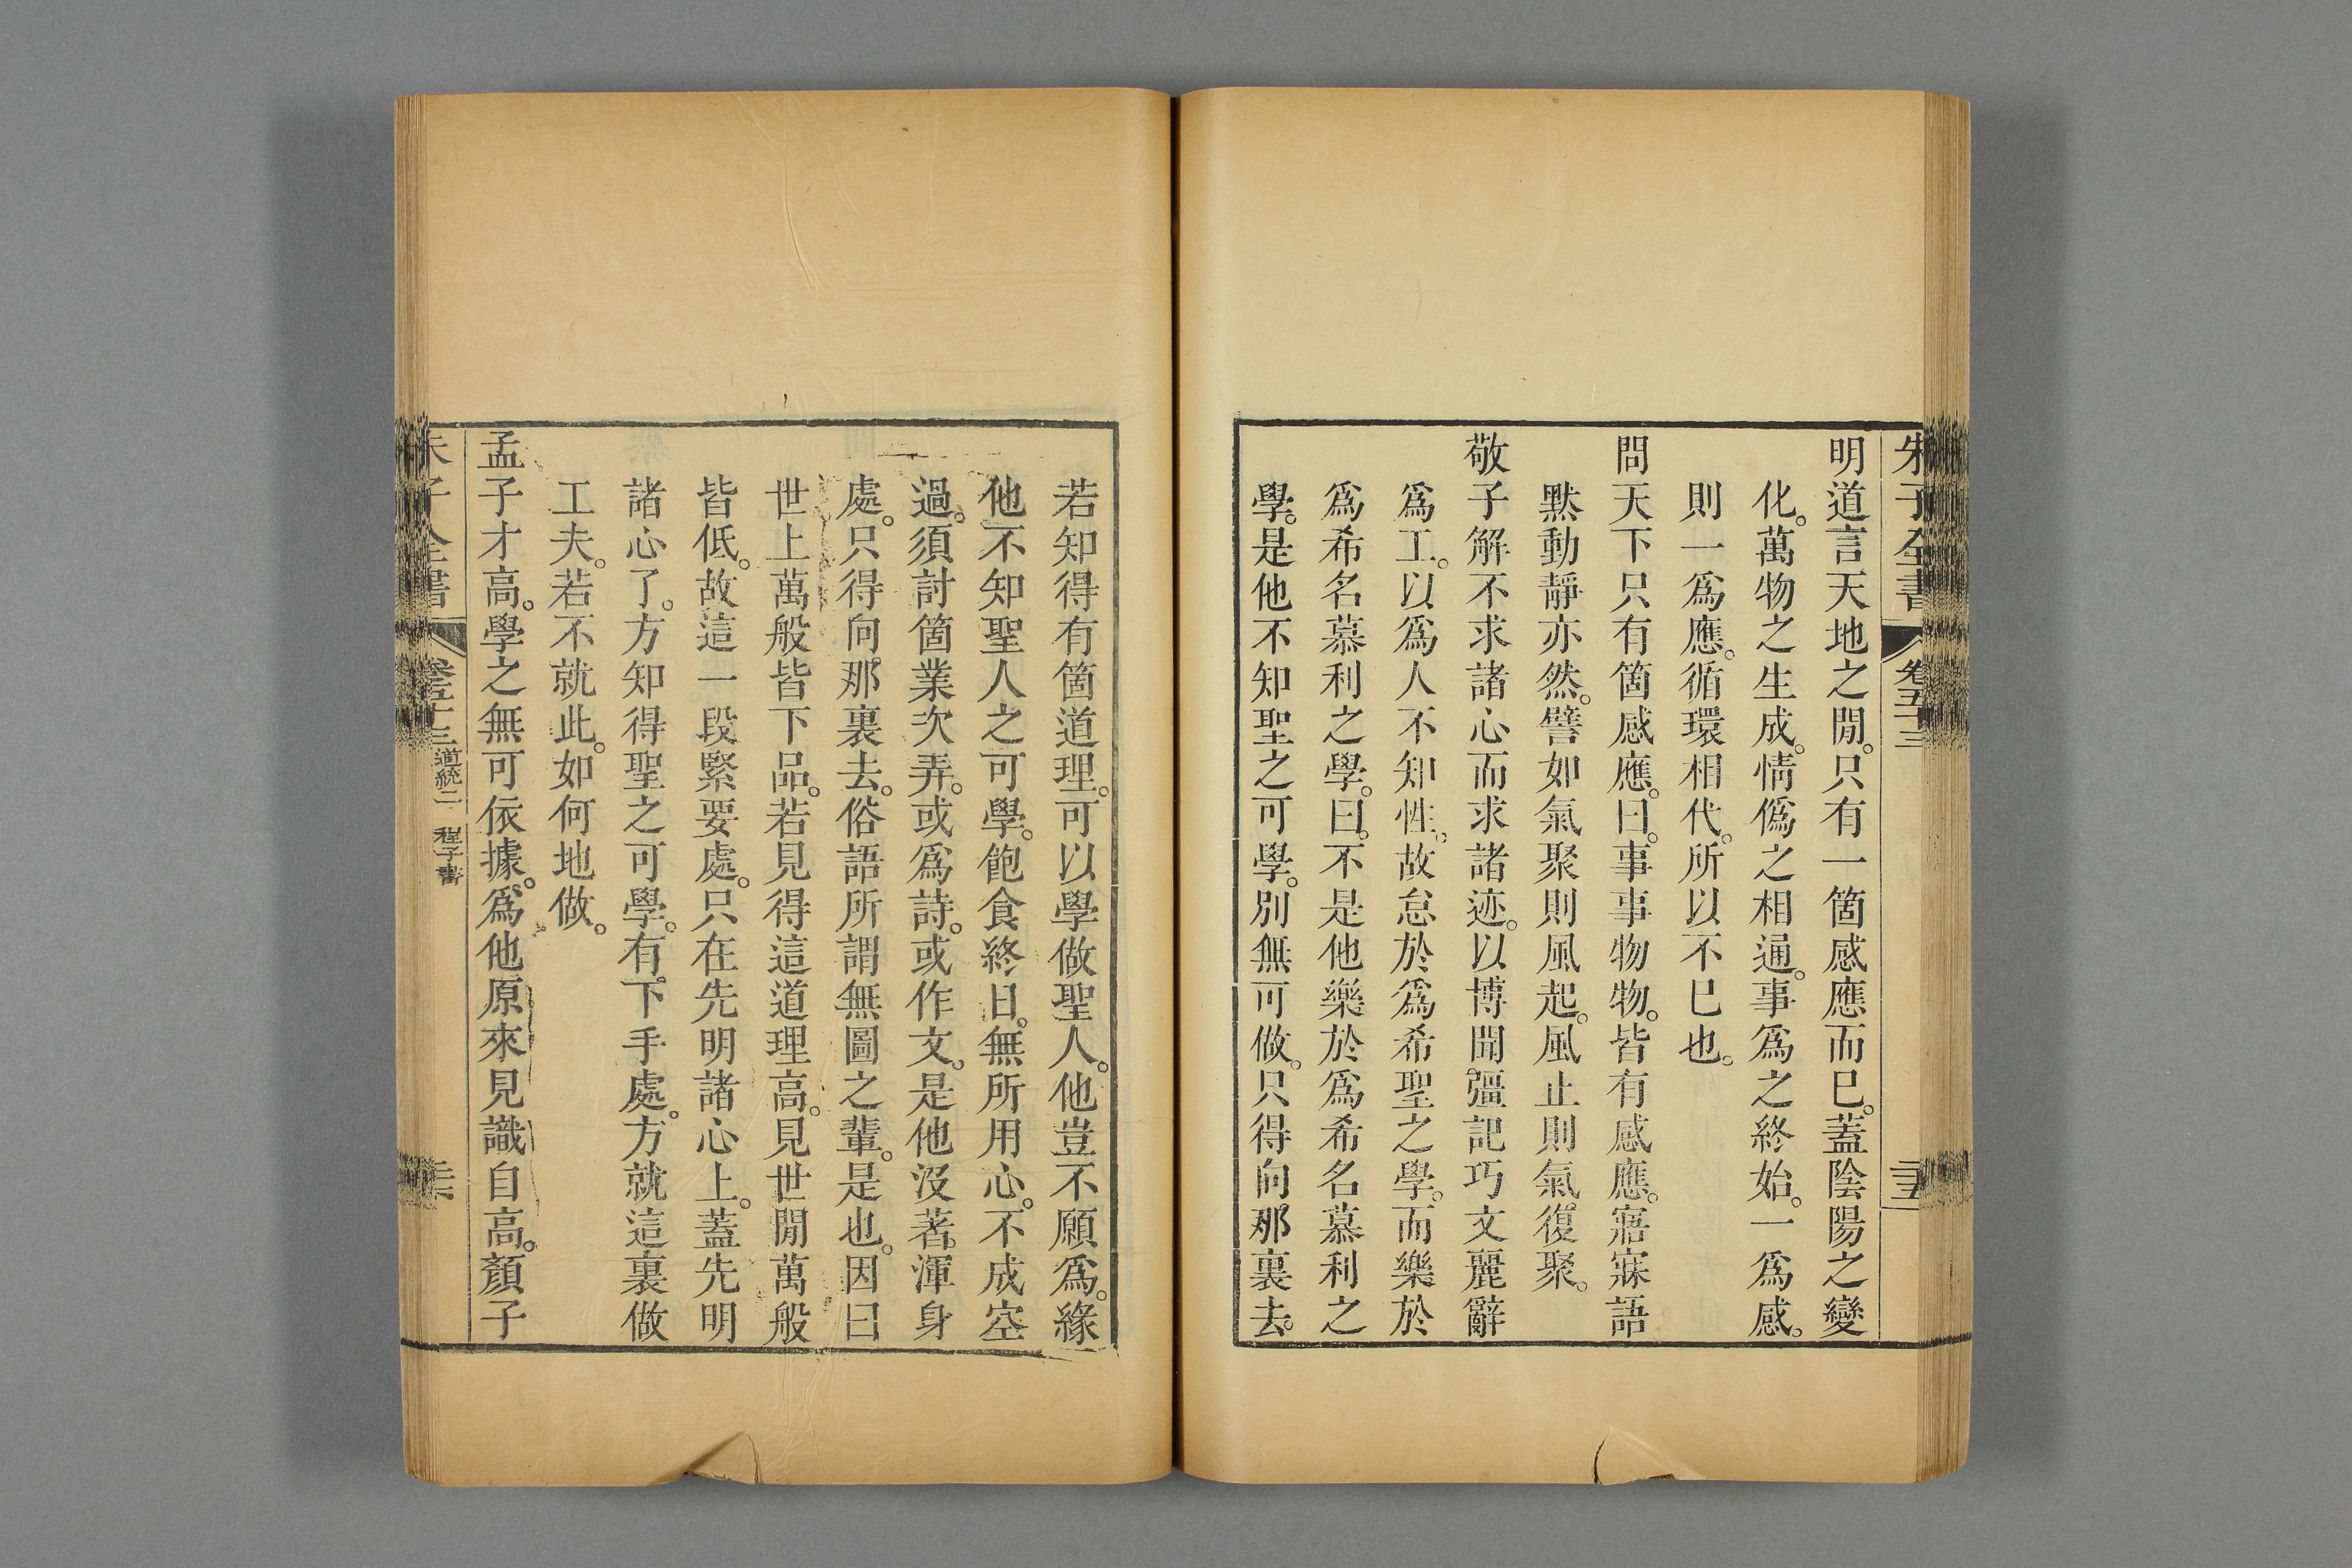 朱子全書 卷五十三
明道言天地之閒。只有一箇感應而巳。蓋陰陽之變
化。萬物之生成。情僞之相通。事爲之終始。一爲感。
則一爲應。循環相代。所以不巳也。
問天下只有箇感應。曰。事事物物。皆有感應。寤寐語
默動靜亦然。譬如氣聚則風起。風止則氣復聚。
敬子解不求諸心而求諸迹。以博聞彊記巧文麗辭
爲工。以爲人不知性。故怠於爲希聖之學。而樂於
爲希名慕利之學。曰。不是他樂於爲希名慕利之
學。是他不知聖之可學。別無可做。只得向那裏去。
若知得有箇道理。可以學做聖人。他豈不願爲。緣
他不知聖人之可學。飽食終日。無所用心。不成空
過。須討箇業次弄。或爲詩。或作文。是他沒著渾身
處。只得向那裏去。俗語所謂無圖之輩。是也。因曰
世上萬般皆下品。若見得這道理高。見世閒萬般
皆低。故這一段緊要處。只在先明諸心上。蓋先明
諸心了。方知得聖之可學。有下手處。方就這裏做
工夫。若不就此。如何地做。
孟子才高。學之無可依據。爲他原來見識自高。顏子
朱子全書 卷五十三 道統二 程子書